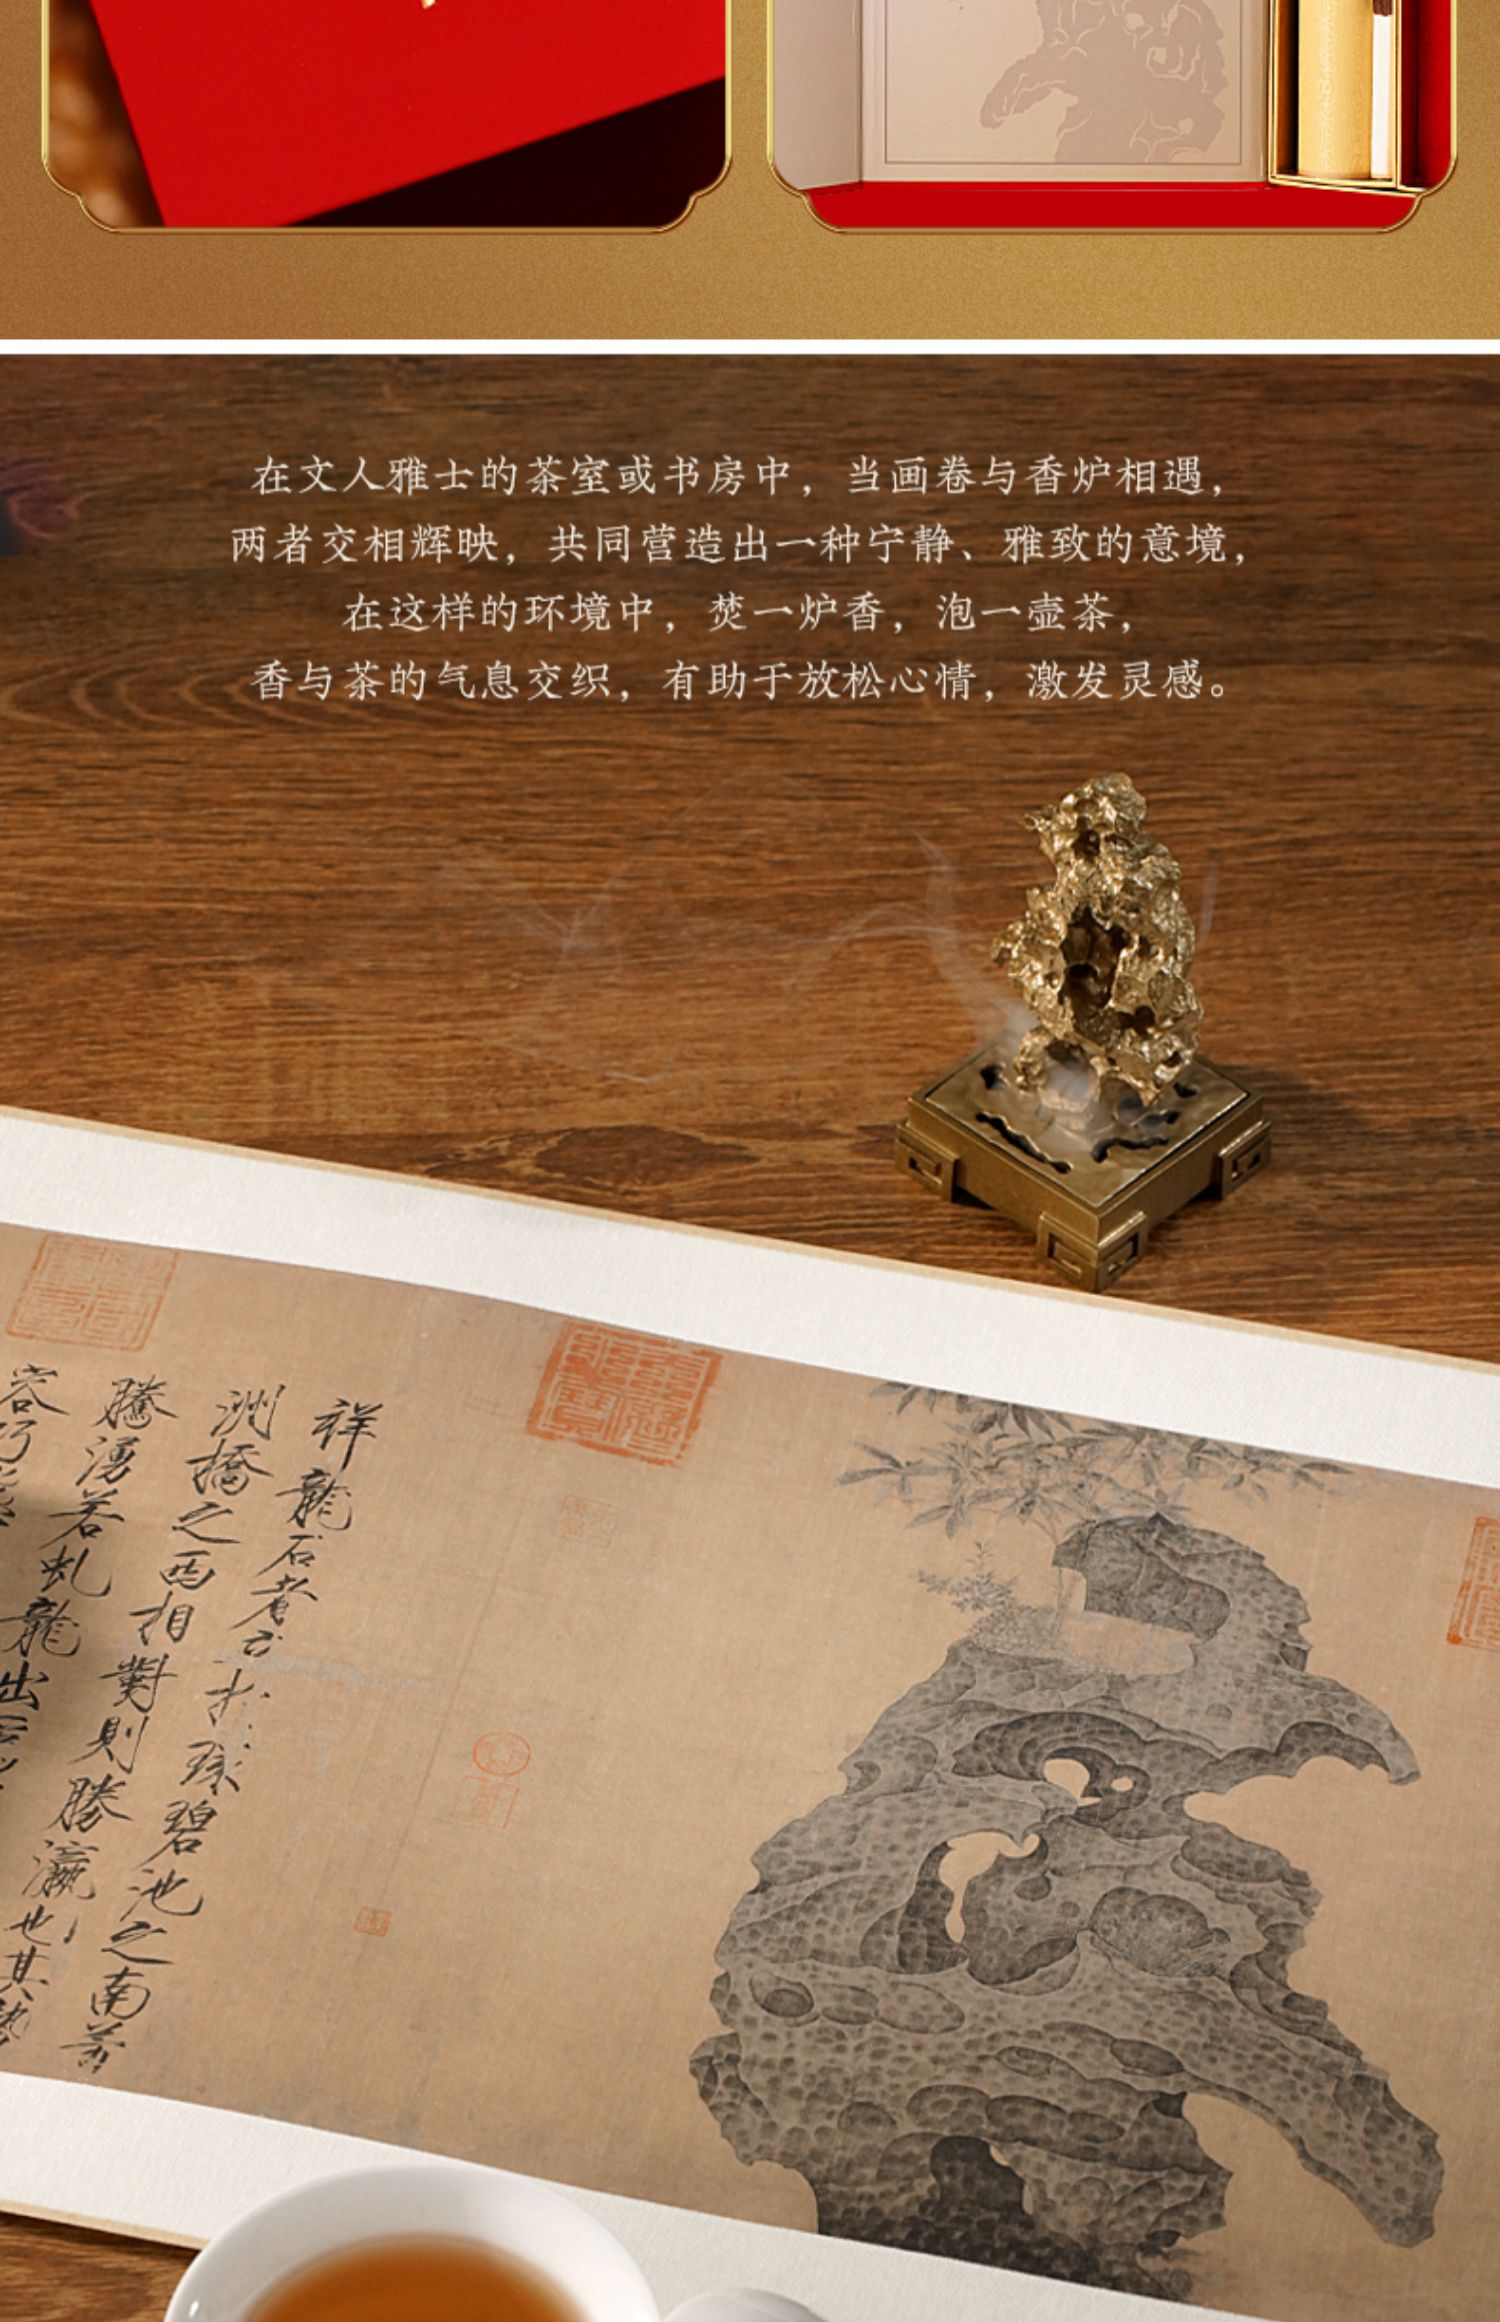 在文人雅士的茶室或书房中，当画卷与香炉相遇，
两者交相辉映，共同营造出一种宁静、雅致的意境，
在这样的环境中，焚一炉香，泡一壶茶，
香与茶的气息交织，有助于放松心情，激发灵感。
祥龍石者立於環碧池之南芳
洲橋之西相對則勝瀛也其勢
騰湧若虬龍出
容巧